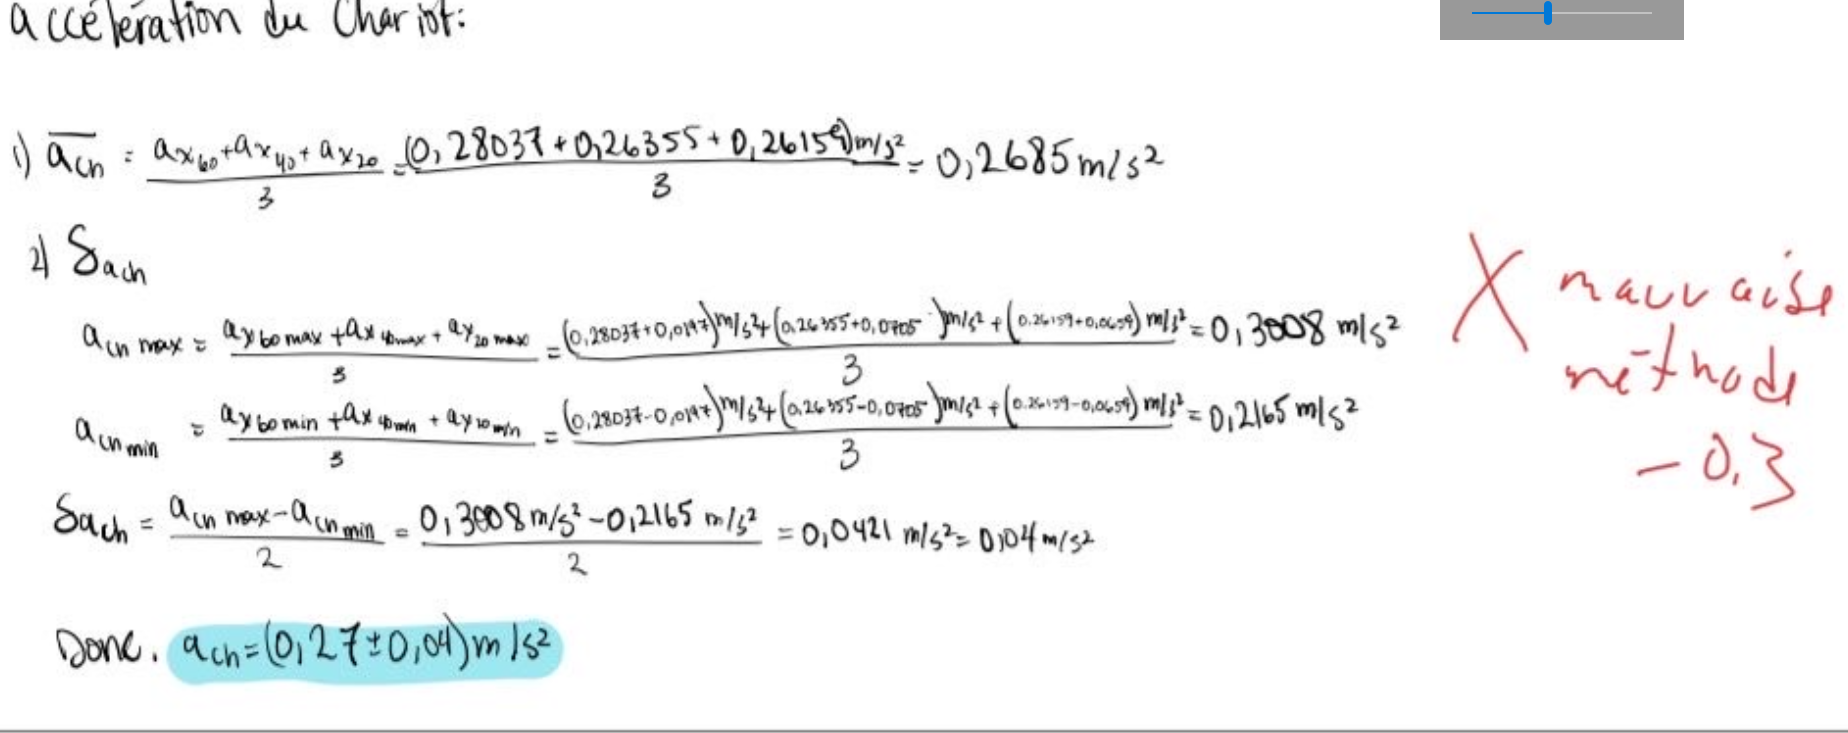 accélération du Chariot:
1) a̅ch = (ax60 + ax40 + ax20)/3 = (0,28037 + 0,26355 + 0,26159)m/s²/3 = 0,2685 m/s²
2) δach
ach max = (ax60 max + ax40 max + ax20 max)/3 = ((0,28037+0,0197)m/s² + (0,26355+0,0705)m/s² + (0.26159+0,0659)m/s²)/3 = 0,3008 m/s²
ach min = (ax60 min + ax40 min + ax20 min)/3 = ((0,28037-0,0197)m/s² + (0,26355-0,0705)m/s² + (0.26159-0,0659)m/s²)/3 = 0,2165 m/s²
δach = (ach max - ach min)/2 = (0,3008 m/s² - 0,2165 m/s²)/2 = 0,0421 m/s² = 0,04 m/s²
Donc. ach = (0,27 ± 0,04) m/s²
X mauvaise
méthode
- 0.3